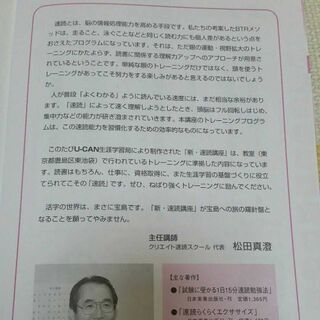 速読とは、脳の情報処理能力を高める手段です。私たちの考案したBTRメソ
ッドは、走ること、泳ぐことなどと同じく読む力にも個人差があるという点を
おさえたプログラムになっています。それは、ただ眼の運動・視野拡大のトレ
ーニングにかたよらず、読書に関係する理解力アップへのアプローチが用意さ
れているということです。単純な眼のトレーニングだけではなく、頭を使うト
レーニングがあってこそ努力をする楽しみがあると言えるのではないでしょう
か。
人が普段「よくわかる」ように読んでいる速度には、まだ相当な余裕があり
ます。「速読」によって速く理解しようとしたとき、頭脳はフル回転しはじめ、
集中力などの能力が研ぎ澄まされてくるのです。本講座のトレーニングプログ
ラムは、この速読能力を習慣化するための効率的なものになっています。
このたびU-CAN生涯学習局により制作された「新・速読講座」は、教室（東
京都豊島区東池袋）で行われているトレーニングに準拠した内容になっていま
す。読書はもちろん、仕事に、資格取得に、また生涯学習の基盤づくりに役立
てられてこその「速読」です。ぜひ、ねばり強くトレーニングに励んでください。
活字の世界は、まさに宝島です。「新・速読講座」が宝島への旅の羅針盤と
なることを願ってやみません。
主任講師
クリエイト速読スクール 代表 松田真澄
【主な著作】
●「試験に受かる1日15分速読勉強法」
日本実業出版社・刊 定価1,365円
●「速読らくらくエクササイズ」